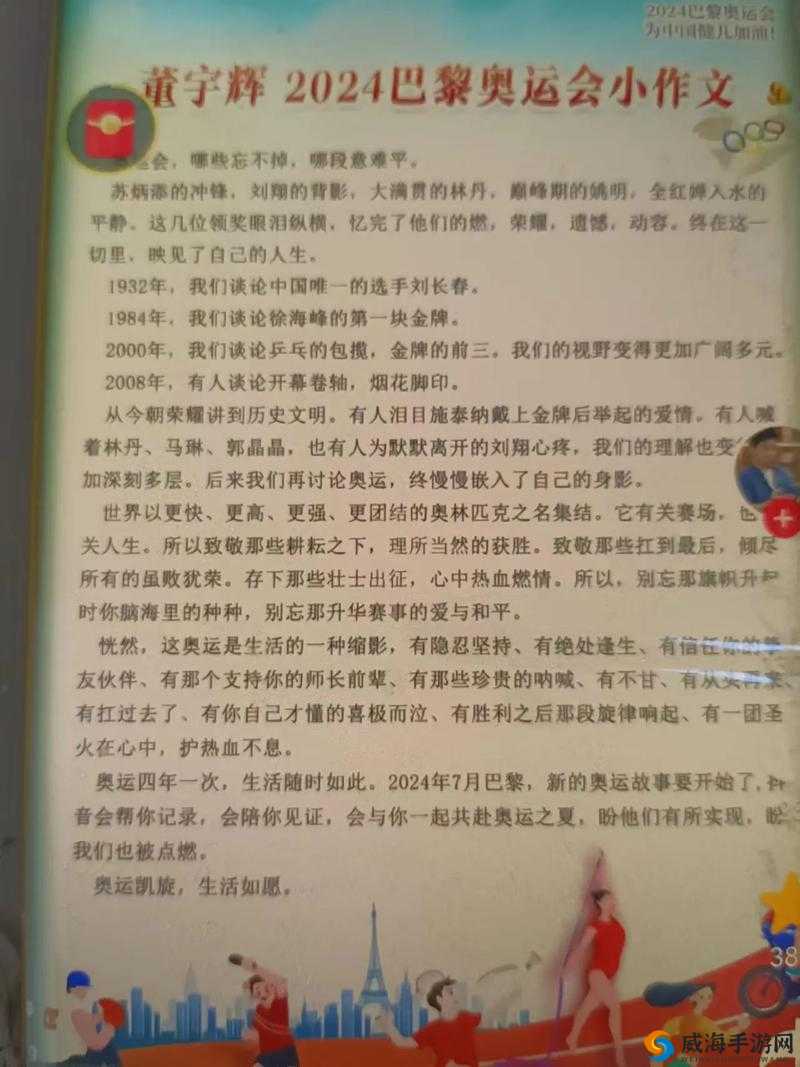 2024巴黎奥运会
为中国健儿加油！
董宇辉 2024巴黎奥运会小作文
运会，哪些忘不掉，哪段意难平。
苏炳添的冲锋，刘翔的背影，大满贯的林丹，巅峰期的姚明，全红婵入水的
平静。这几位领奖眼泪纵横，忆完了他们的燃，荣耀，遗憾，动容。终在这一
切里，映见了自己的人生。
1932年，我们谈论中国唯一的选手刘长春。
1984年，我们谈论徐海峰的第一块金牌。
2000年，我们谈论乒乓的包揽，金牌的前三。我们的视野变得更加广阔多元。
2008年，有人谈论开幕卷轴，烟花脚印。
从今朝荣耀讲到历史文明。有人泪目施泰纳戴上金牌后举起的爱情。有人喊
着林丹、马琳、郭晶晶，也有人为默默离开的刘翔心疼，我们的理解也变
加深刻多层。后来我们再讨论奥运，终慢慢嵌入了自己的身影。
世界以更快、更高、更强、更团结的奥林匹克之名集结。它有关赛场，也
关人生。所以致敬那些耕耘之下，理所当然的获胜。致敬那些扛到最后，倾尽
所有的虽败犹荣。存下那些壮士出征，心中热血燃情。所以，别忘那旗帜升起
时你脑海里的种种，别忘那升华赛事的爱与和平。
恍然，这奥运是生活的一种缩影，有隐忍坚持、有绝处逢生、有信任你的挚
友伙伴、有那个支持你的师长前辈、有那些珍贵的呐喊、有不甘、有从头再来、
有扛过去了、有你自己才懂的喜极而泣、有胜利之后那段旋律响起、有一团圣
火在心中，护热血不息。
奥运四年一次，生活随时如此。2024年7月巴黎，新的奥运故事要开始了，抖
音会帮你记录，会陪你见证，会与你一起共赴奥运之夏，盼他们有所实现，盼
我们也被点燃。
奥运凯旋，生活如愿。
38
威海手游网